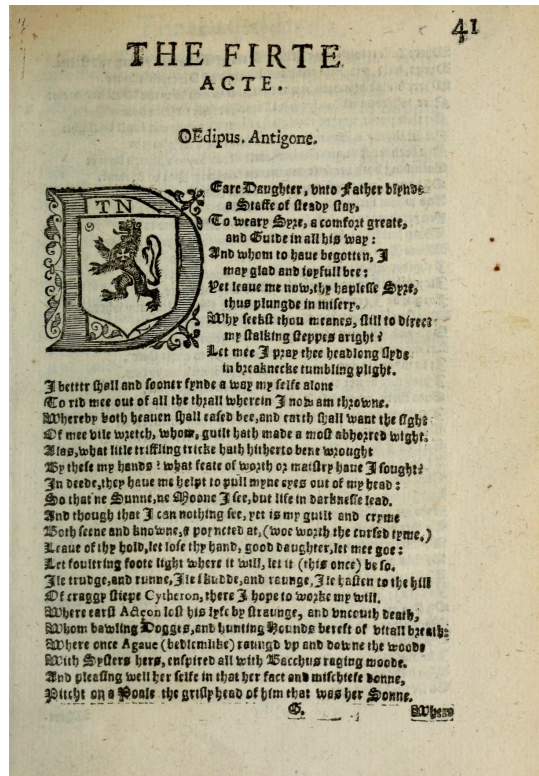 41
THE FIRTE
ACTE.
OEdipus. Antigone.
TN
DEare Daughter, vnto Father blynde
a Staffe of steady stay,
To weary Syre, a comfort greate,
and Guide in all his way:
And whom to haue begotten, I
may glad and ioyfull bee:
Yet leaue me now, thy haplesse Syre,
thus plungde in misery.
Why seekst thou meanes, still to direct
my stalking steppes aright?
Let mee I pray thee headlong slyde
in breaknecke tumbling plight.
I better shall and sooner fynde a way my selfe alone
To rid mee out of all the thrall wherein I now am throwne.
Whereby both heauen shall eased bee, and earth shall want the sight
Of mee vile wretch, whom, guilt hath made a most abhorred wight.
Alas, what litle triffling tricke hath hitherto bene wrought
By these my hands? what feate of worth or maistry haue I sought?
In deede, they haue me helpt to pull myne eyes out of my head:
So that ne Sunne, ne Moone I see, but life in darknesse lead.
And though that I can nothing see, yet is my guilt and cryme
Both seene and knowne, & poyncted at, (woe worth the cursed tyme.)
Leaue of thy hold, let lose thy hand, good daughter, let mee goe:
Let foultring foote light where it will, let it (this once) be so.
Ile trudge, and runne, Ile skudde, and raunge, Ile hasten to the hill
Of craggy stiepe Cytheron, there I hope to worke my will.
Where earst Acteon lost his lyfe by straunge, and vncouth death,
Whom bawling Dogges, and hunting Hounds bereft of vitall breath:
Where once Agaue (bedlemlike) raungd vp and downe the woods
With Systers hers, enspired all with Bacchus raging moode.
And pleasing well her selfe in that her fact and mischiefe donne,
Pitcht on a Poale the grisly head of him that was her Sonne.
G.
Where